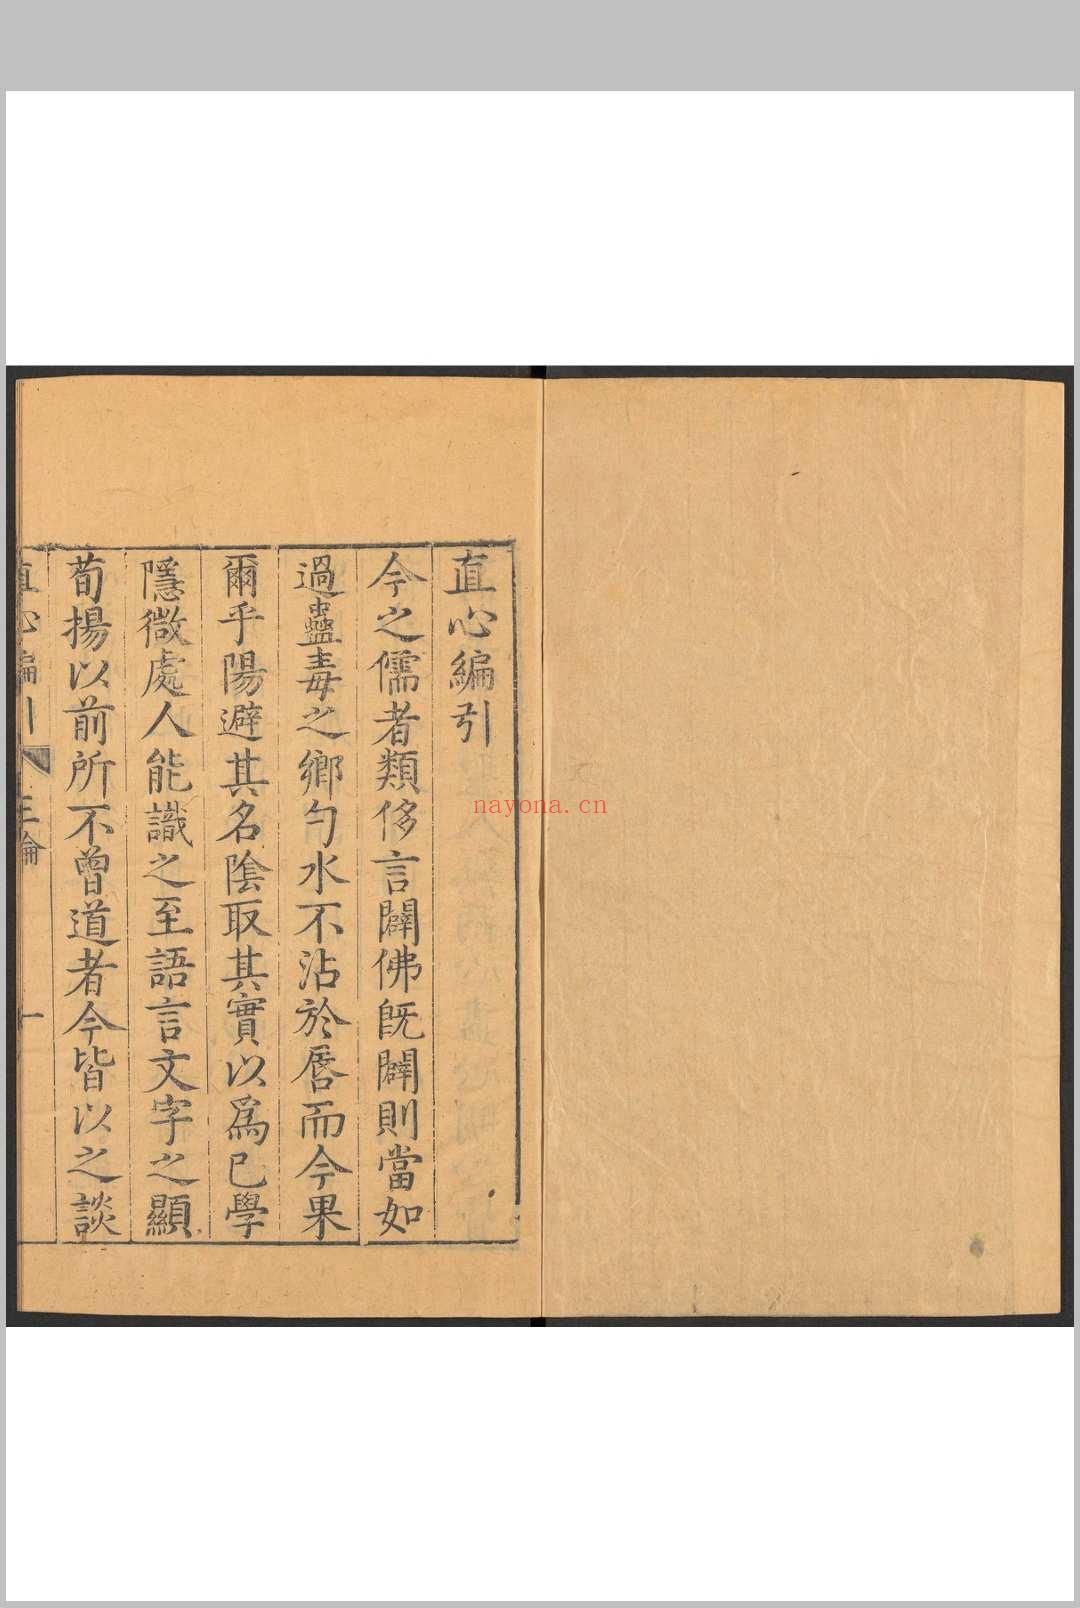 直心編引
今之儒者類侈言闢佛旣闢則當如
過蠱毒之鄉勺水不沾於唇而今果
爾乎陽避其名陰取其實以爲已學
隱微處人能識之至語言文字之顯
荀揚以前所不曾道者今皆以之談
直心編引 三論 一
nayona.cn